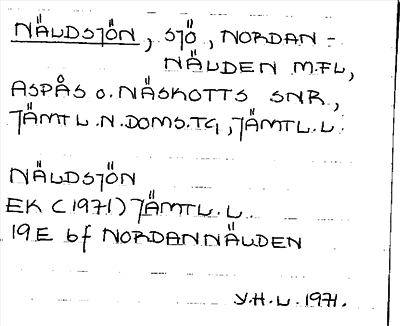 NÄLDSJÖN, SJÖ, NORDAN-
NÄLDEN M.FL,
ASPÅS O. NÄSKOTTS SNR,
JÄMTL.N.DOMS.TG, JÄMTL.L.
NÄLDSJÖN
EK (1971) JÄMTL.L.
19E bf NORDANNÄLDEN
Y.H.L. 1971.